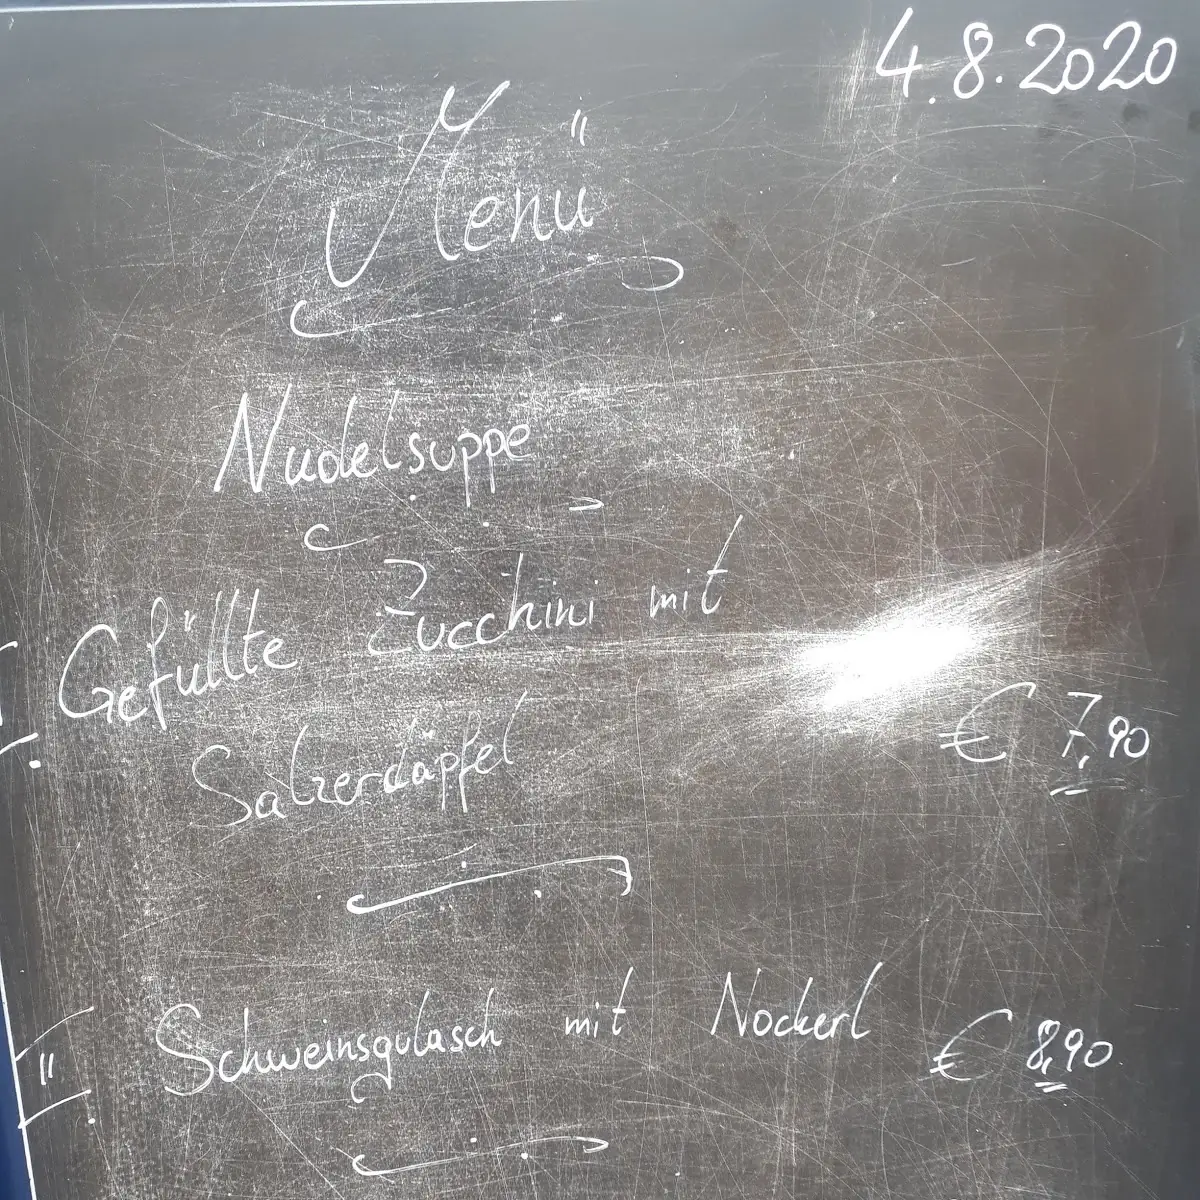 4.8.2020
Menü
Nudelsuppe
Gefüllte Zucchini mit
Salzerdäpfel € 7,90
II Schweinsgulasch mit Nockerl € 8,90